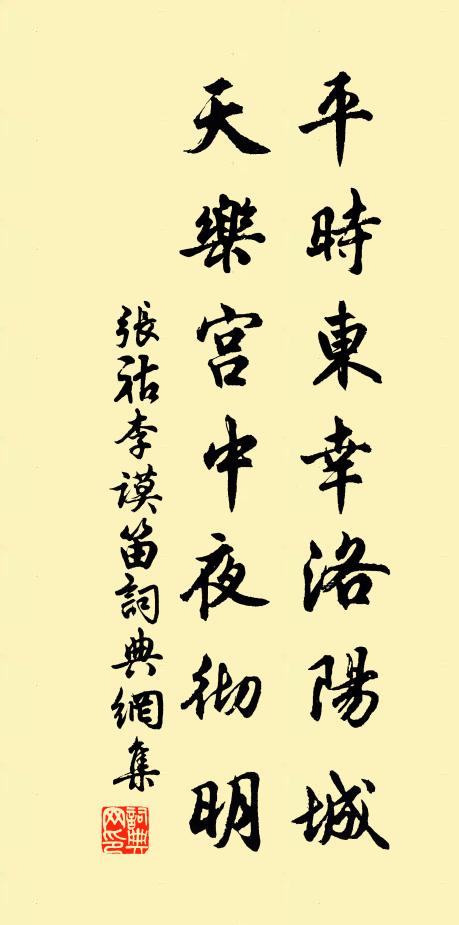 平時東幸洛陽城
天樂宮中夜彻明
張祜李謨笛詞典網集
詞典网印